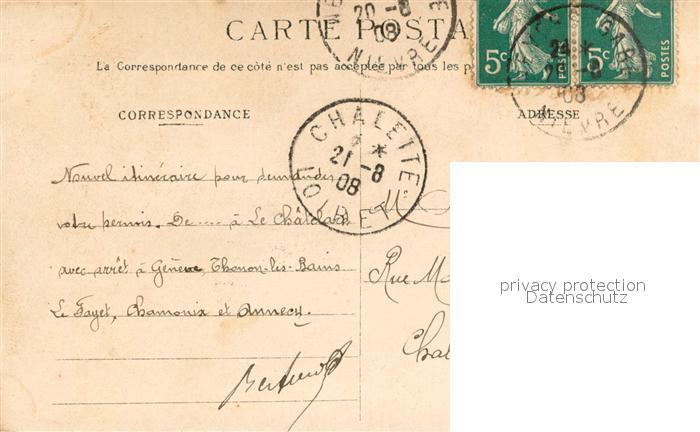 20 -8
08
NIEVRE
CARTE POSTA
La Correspondance de ce côté n'est pas acceptée par tous les p
5c 5c
POSTES POSTES
GARE
08
NIEVRE
CORRESPONDANCE
ADRESSE
CHALETTE
21 -8
08
LOIRET
Nouvel itinéraire pour demander
votre permis. De ..... à Le Châtelard
avec arrêt à Genève Thonon-les-Bains
Le Fayet, Chamonix et Annecy.
M
Rue Ma
Chal
privacy protection
Datenschutz